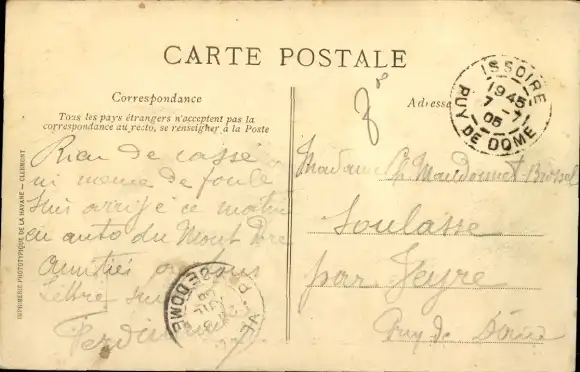 CARTE POSTALE
Correspondance
Tous les pays étrangers n'acceptent pas la
correspondance au recto, se renseigner à la Poste
Adresse
ISSOIRE
1945
7 - 7
05
PUY DE DOME
Rien de cassé
ni meme de foulé
suis arrivé ce matin
en auto du Mont Dore
amitiés
Lettre suit
Ferdinand
Madame
par Veyre
Puy de Dôme
DE DOME
IMPRIMERIE PHOTOTYPIQUE DE LA HAVANE — CLERMONT